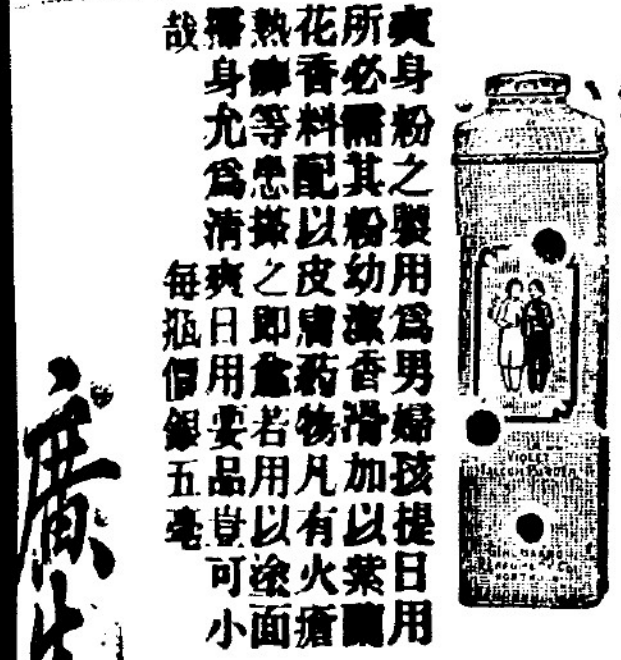 爽身粉之製用爲男婦孩提日用
所必需其粉幼潔香滑加以紫蘭
花香料配以皮膚药物凡有火瘡
熱等患搽之即愈若用以塗面
身尤爲清爽日用要品豈可小
哉 每瓶價銀五毫
廣生
VIOLET
TALCUM POWDER